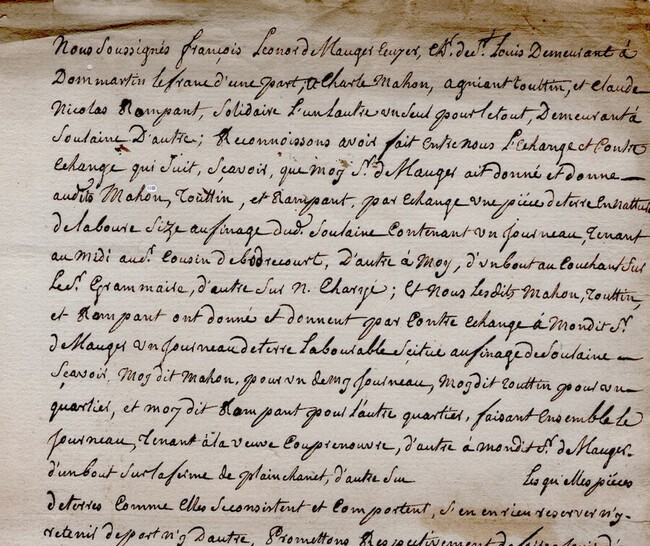 Nous Soussignés françois Leonor de Mauger Ecuyer, Ch.r de S.t Louis Demeurant á
Dommartin lefranc d'une part, et Charle Mahon, agniant touttin, et Claude
Nicolas Rampant, Solidaire L'un Lautre un Seul pour le tout, Demeurant á
Soulaine D'autre; Reconnoissons avoir fait Entre nous L'Echange et Contre
Echange qui Suit, Sçavoir, que moy S.r de Mauger ait donné et donne
audits Mahon, Touttin, et Rampant, par Echange une piéce de terre En Nature
de laboure Size au finage dud. Soulaine Contenant un Journeau, Tenant
au Midi aud. Cousin de bodrecourt, D'autre á Moy, d'un bout au Couchant Sur
Le S.r Grammaire, d'autre Sur N. Chargé; Et Nous Lesdits Mahon, Touttin,
et Rampant ont donné et donnent par Contre Echange á Mondit S.r
de Mauger un Journeau de terre Labourable Scituée au finage de Soulaine
Sçavoir, Moy dit Mahon, pour un demy Journeau, Moy dit Touttin pour un
quartier, et moy dit Rampant pour L'autre quartier, faisant Ensemble le
Journeau, Tenant á la veuve Couprenouvre, d'autre á mondit S.r de Mauger
d'un bout Sur la ferme de plainchanet, d'autre Sur Les quielles piéces
de terres Comme Elles Se consistent et Comportent, S'en en rien reserver n'y
retenir de part n'y D'autre, Promettons Respectivement